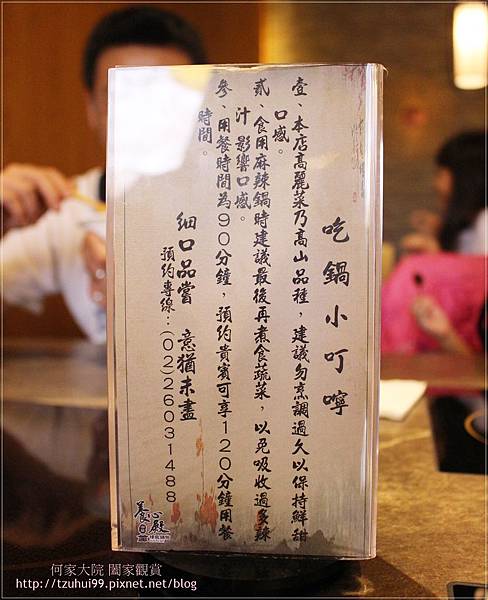 吃鍋小叮嚀
壹、本店高麗菜乃高山品種，建議勿烹調過久以保持鮮甜
口感。
貳、食用麻辣鍋時建議最後再煮食蔬菜，以免吸收過多辣
汁影響口感。
參、用餐時間為90分鐘，預約貴賓可享120分鐘用餐
時間。
細口品嘗 意猶未盡
預約專線：(02)26031488
養心殿
何家大院 闔家觀賞
http://tzuhui99.pixnet.net/blog